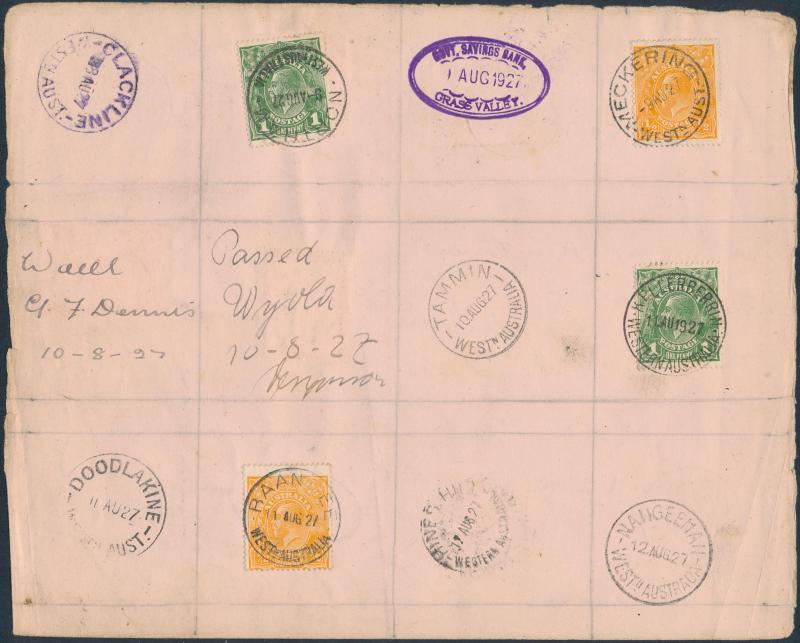 CLACKLINE
WEST'N AUST.
8 AU 27
NORTHAM
WEST AUSTRALIA
8 AUG 27
POSTAGE
1 ONE PENNY 1
GOVT. SAVINGS BANK,
AUG 1927
GRASS VALLEY.
MECKERING
9 AU 27
WESTN AUST
Passed
Wyola
10-8-27
G. F. Dennis
10-8-27
-TAMMIN-
10.AUG.27
WESTN AUSTRALIA
KELLERBERRIN
AU 1927
WESTERN AUSTRALIA
POSTAGE
1 ONE PENNY
-DOODLAKINE-
11 AU 27
AUST.-
BAANDEE
AUSTRALIA
11 AUG 27
WESTN AUSTRALIA
AUG 27
WESTERN AUS
-NANGEENAN-
12.AUG.27
WESTN AUSTRALIA